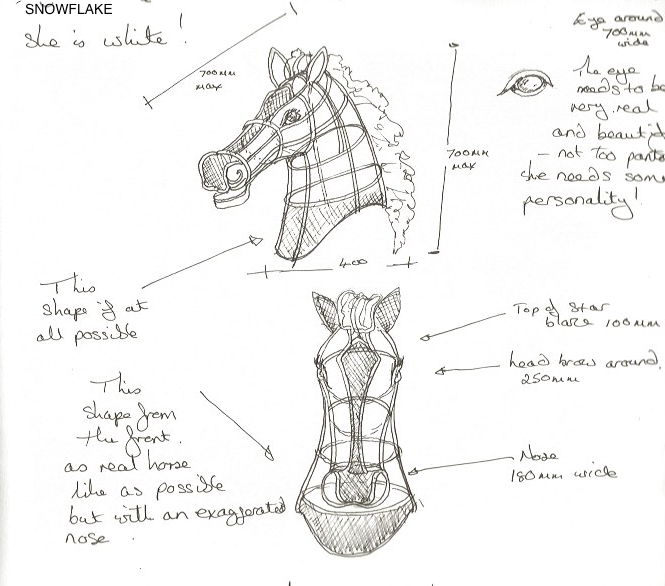 SNOWFLAKE
she is white!
700mm
max
700mm
max
400
Eye around
700mm
wide
The eye
needs to be
very real
and
- not too
she needs
personality!
This
shape if at
all possible
Top of Star
blaze 100mm
head brow around
250mm
This
shape from
the front.
as real horse
like as possible
but with an exaggerated
nose.
Nose
180mm wide